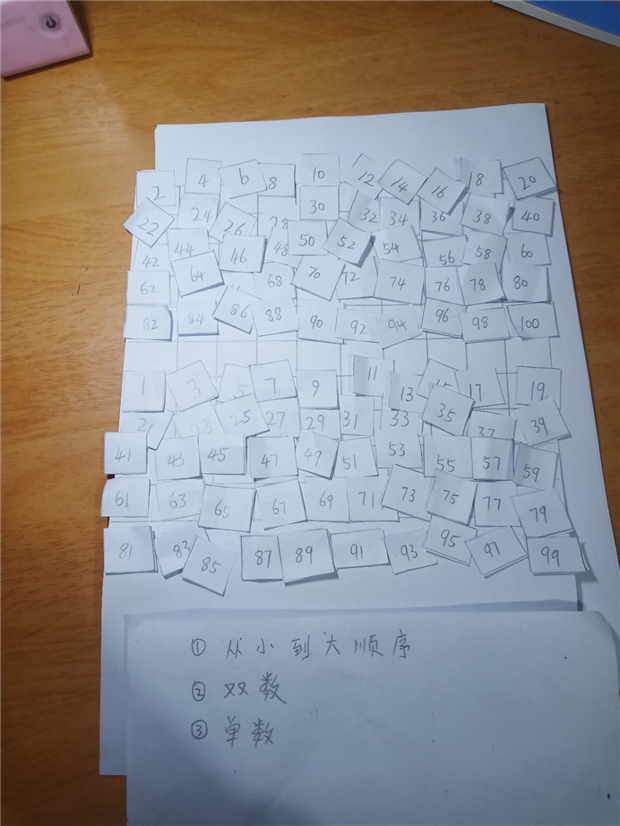 2 4 6 8 10 12 14 16 18 20
22 24 26 28 30 32 34 36 38 40
42 44 46 48 50 52 54 56 58 60
62 64 68 70 72 74 76 78 80
82 84 86 88 90 92 94 96 98 100
1 3 5 7 9 11 13 15 17 19
23 25 27 29 31 33 35 37 39
41 43 45 47 49 51 53 55 57 59
61 63 65 67 69 71 73 75 77 79
81 83 85 87 89 91 93 95 97 99
① 从小到大顺序
② 双数
③ 单数